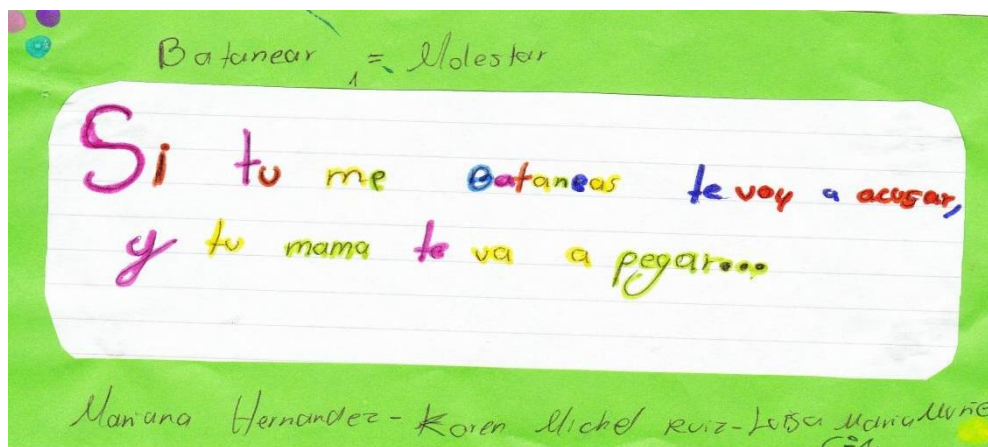 Batanear = Molestar
Si tu me Bataneas te voy a acusar,
y tu mama te va a pegar...
Mariana Hernandez - Karen Michel Ruiz - Luisa Maria